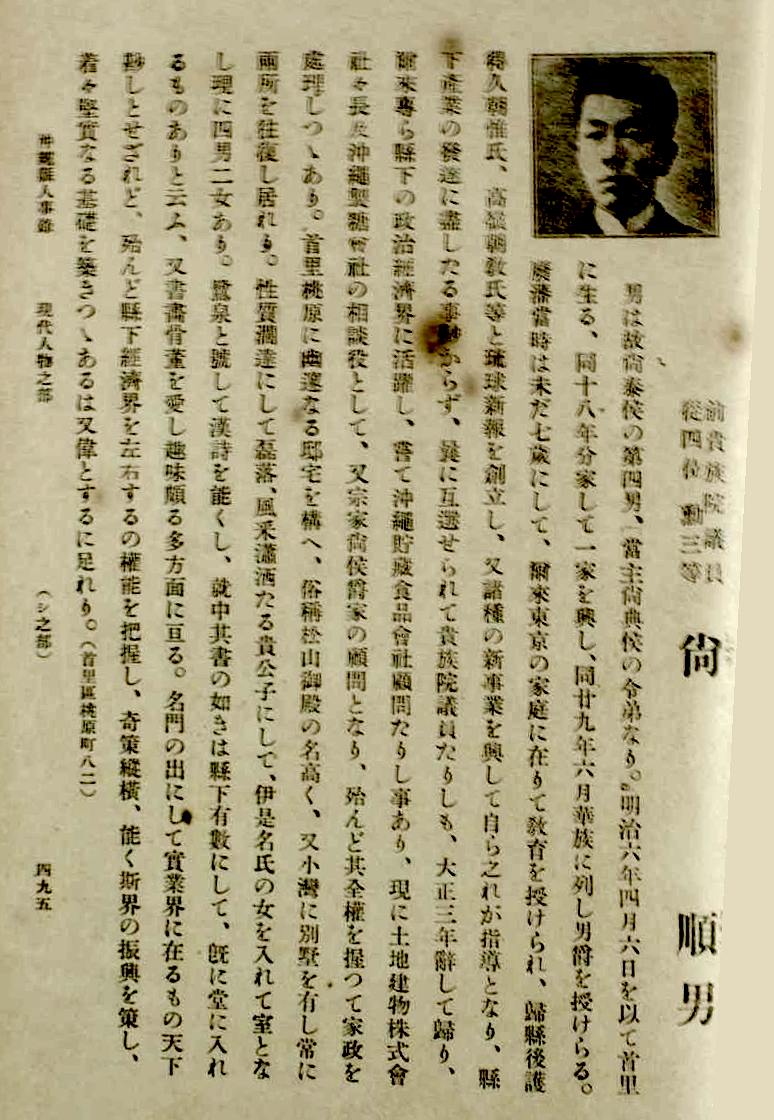 前貴族院議員
從四位 勳三等
尙 順 男
男は故尙泰侯の第四男、當主尙典侯の令弟なり。明治六年四月六日を以て首里
に生る、同十八年分家して一家を興し、同廿九年六月華族に列し男爵を授けらる。
廢藩當時は未だ七歲にして、爾來東京の家庭に在りて敎育を授けられ、歸縣後護
得久朝惟氏、高嶺朝敎氏等と琉球新報を創立し、又諸種の新事業を興して自ら之れが指導となり、縣
下產業の發達に盡したる事尠からず、曩に互選せられて貴族院議員たりしも、大正三年辭して歸り、
爾來專ら縣下の政治經濟界に活躍し、嘗て沖繩貯藏食品會社顧問たりし事あり、現に土地建物株式會
社々長及沖繩製糖會社の相談役として、又宗家尙侯爵家の顧問となり、殆んど其全權を握つて家政を
處理しつゝあり。首里桃原に幽邃なる邸宅を構へ、俗稱松山御殿の名高く、又小灣に別墅を有し常に
兩所を往復し居れり。性質濶達にして磊落、風采瀟洒たる貴公子にして、伊是名氏の女を入れて室とな
し理に四男二女あり。鷺泉と號して漢詩を能くし、就中其書の如きは縣下有數にして、旣に堂に入れ
るものありと云ふ、又書畵骨董を愛し趣味頗る多方面に亘る。名門の出にして實業界に在るもの天下
尠しとせざれど、殆んど縣下經濟界を左右するの權能を把握し、奇策縱橫、能く斯界の振興を策し、
着々堅實なる基礎を築きつゝあるは又偉とするに足れり。（首里區桃原町八二）
沖繩縣人事錄 現代人物之部 （シ之部） 四九五